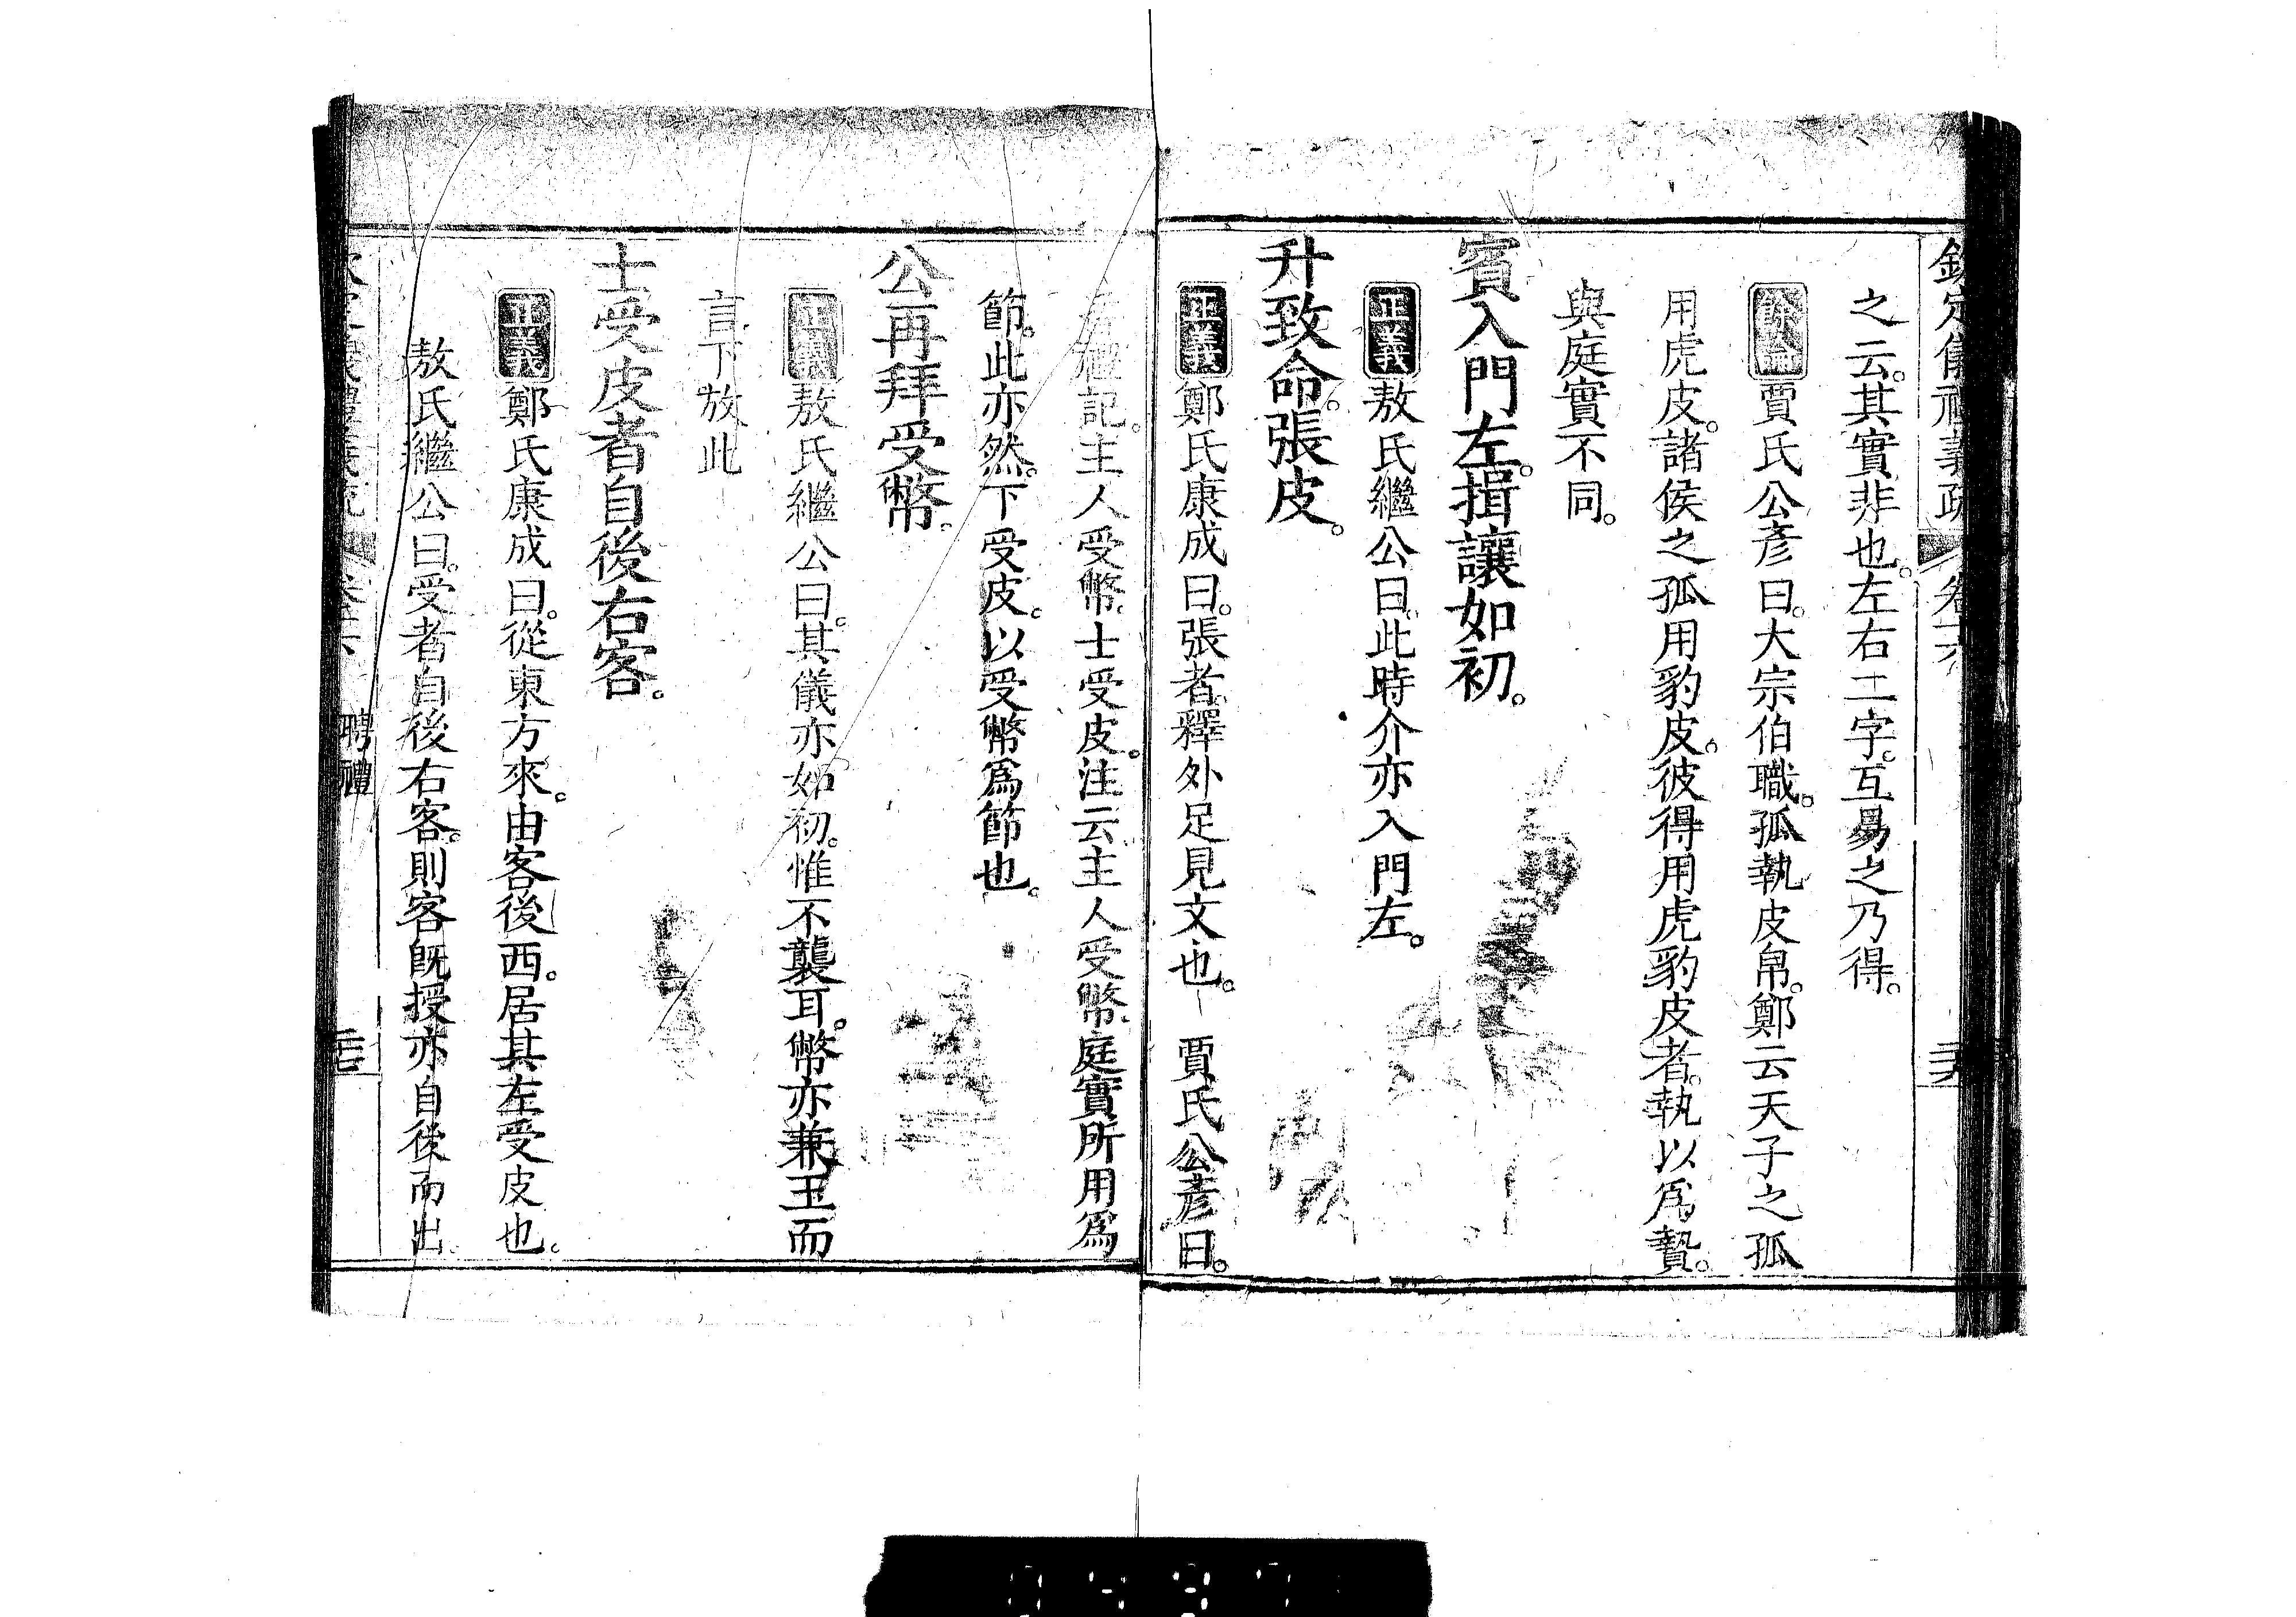 欽定儀禮義疏 卷十六
之云。其實非也。左右二字。互易之乃得。
餘論 賈氏公彥曰。大宗伯職。孤執皮帛。鄭云天子之孤
用虎皮。諸侯之孤用豹皮。彼得用虎豹皮者。執以爲贄。
與庭實不同。
賓入門左。揖讓如初。
正義 敖氏繼公曰。此時介亦入門左。
升致命張皮。
正義 鄭氏康成曰。張者。釋外足見文也。 賈氏公彥曰。
記。主人受幣。士受皮。注云。主人受幣。庭實所用爲
節。此亦然。下受皮。以受幣爲節也。
公再拜受幣。
正義 敖氏繼公曰。其儀亦如初。惟不襲耳。幣亦兼玉而
言。下放此
士受皮者自後右客。
正義 鄭氏康成曰。從東方來。由客後西。居其左受皮也。
敖氏繼公曰。受者自後右客。則客旣授亦自後而出。
聘禮